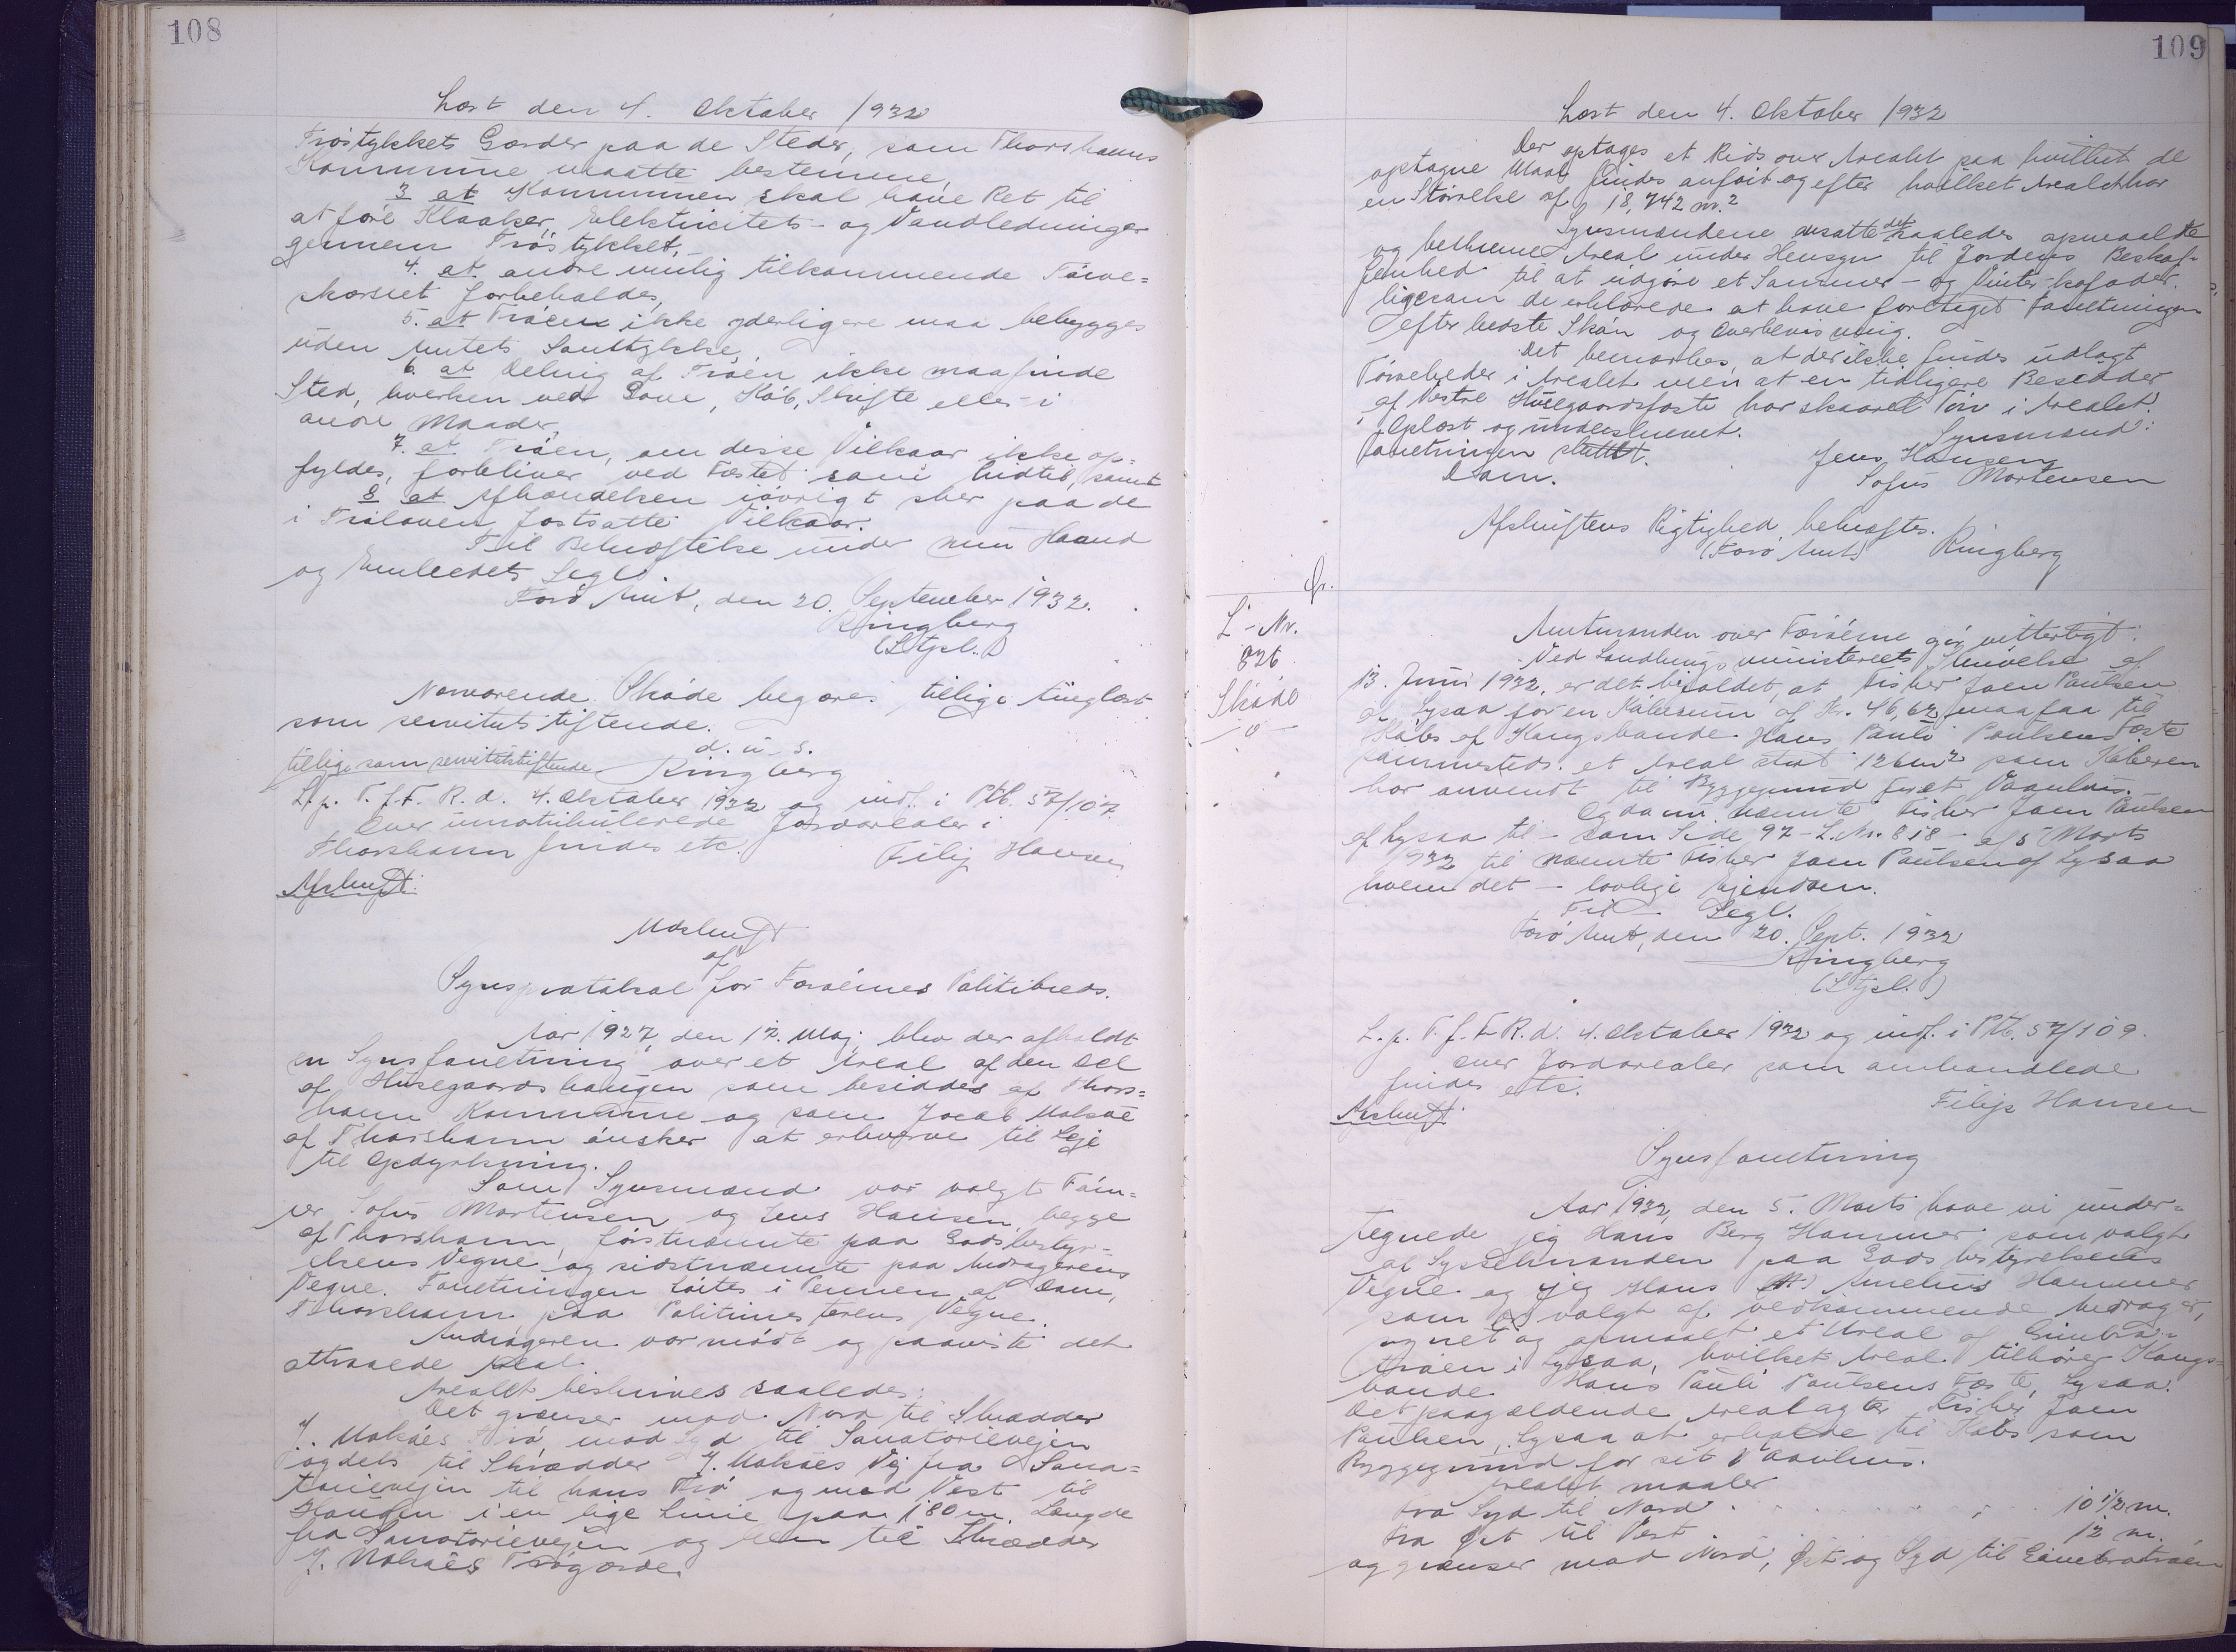 108
Læst den 4. Oktober 1932
Trøstykkets Gærder paa de Steder, som Thorshavns
Kommune maatte bestemme,
3 at Kommunen skal have Ret til
at føre Kloaker, Elektricitets- og Vandledninger
gennem Trøstykket,
4. at andre mulig tilkommende Tørve=
skæret forbeholdes,
5. at Trøen ikke yderligere maa bebygges
uden Amtets Samtykke,
6. at Deling af Trøen ikke maa finde
Sted, hverken ved Gave, Køb, Skifte eller i
andre Maader,
7. at Trøen, om disse Vilkaar ikke op=
fyldes, forbliver ved Fæstet som hidtil, samt
8 at Afhændelsen iøvrigt sker paa de
i Trøloven fastsatte Vilkaar.
Til Bekræftelse under min Haand
og Embedets Segl.
Færø Amt, den 20. September 1932.
Ringberg
(L Stpl.)
Nærværende Skøde begæres tillige tinglæst
som servitutstiftende.
d. u. s.
tillige som servitutstiftende Ringberg
L. p. T. f. F. R. d. 4. Oktober 1932 og indf. i Ptb. 57/107
Over umatrikulerede Jordarealer i
Thorshavn findes etc.
Filip Hansen
Afskrift:
Udskrift
af
Synsprotokol for Færøernes Politikreds.
Aar 1927, den 17. Maj, blev der afholdt
en Synsforretning over et Areal af den Del
af Húsegaards haugen som besiddes af Thors=
havn Kommune og som Jacob Mohr
af Thorshavn ønsker at erhverve til Leje
til Opdyrkning.
Som Synsmænd var valgt Tøm=
rer Sofus Mortensen og Jens Hansen, begge
af Thorshavn, førstnævnte paa Godsbestyr=
elsens Vegne og sidstnævnte paa Andragerens
Vegne. Forretningen førtes i Pennen af Dam,
Thorshavn, paa Politimesterens Vegne.
Andrageren var mødt og paaviste det
attraaede Areal.
Arealet beskrives saaledes:
Det grænser mod Nord til Skrædder
J. Mohrs Trø, mod Syd til Sanatorievejen
og dels til Skrædder J. Mohrs Vej fra Sana=
torievejen til hans Trø og mod Vest til
Haugen i en lige Linie paa 180 m. Længde
fra Sanatorievejen og hen til Skrædder
J. Mohrs Trøgærde.
109
Læst den 4. Oktober 1932
Der optages et Rids over Arealet paa hvilket de
optagne Maal findes anført og efter hvilket Arealet har
en Størrelse af 18,742 m.²
Synsmændene ansatte det saaledes opmaalte
og beskrevne Areal under Hensyn til Jordens Beskaf=
fenhed til at udgøre et Sommer- og Vinter-kofoder,
ligesom de erklærede at have foretaget Forretningen
efter bedste Skøn og Overbevisning.
Det bemærkes, at der ikke findes udlagt
Tørveheder i Arealet men at en tidligere Besidder
af Vestre Húsegaardsfæste har skaaret Tørv i Arealet.
Oplæst og underskrevet.
Forretningen sluttet.
Synsmænd:
Dam.
Jens Hansen
Sofus Mortensen
Afskriftens Rigtighed bekræftes.
(Færø Amt) Ringberg
Gr.
L-Nr.
826
Skøde
Amtmanden over Færøerne gør vitterligt:
Ved Landbrugsministeriets Skrivelse af
13. Juni 1932, er det bifaldet, at Fisker Joen Poulsen
af Lysaa for en Købesum af Kr. 46,62 maa faa til
Købs af Kongsbonde Hans Pauli Poulsens Fæste
sammesteds et Areal stort 126 m² som Køberen
har anvendt til Byggegrund for et Vaanhus.
Og da nu nævnte Fisker Joen Poulsen
af Lysaa til - som Side 97 - L. Nr. 818 - af 5 Marts
1932 til nævnte Fisker Joen Poulsen af Lysaa
hvem det - lovlige Ejendom.
Til - Segl.
Færø Amt, den 20. Sept. 1932
Ringberg
(L Stpl.)
L. p. T. f. F. R. d. 4. Oktober 1932 og indf. i Ptb. 57/109.
Over Jordarealer som omhandlede
findes etc.
Filip Hansen
Afskrift:
Synsforretning
Aar 1932, den 5. Marts have vi under=
tegnede jeg Hans Berg Hammer som valgt
af Sysselmanden paa Godsbestyrelsens
Vegne og jeg Hans Amelius Hammer
som valgt af vedkommende Andrager,
synet og opmaalt et Areal af
trøen i Lysaa, hvilket Areal tilhører Kongs=
bonde Hans Pauli Poulsens Fæste, Lysaa.
Det paagældende Areal agter Fisker Joen
Poulsen, Lysaa at erholde til Købs som
Byggegrund for sit Vaanhus.
Arealet maaler
fra Syd til Nord . . . . . 10 1/2 m.
fra Øst til Vest 12 m.
og grænser mod Nord, Øst og Syd til